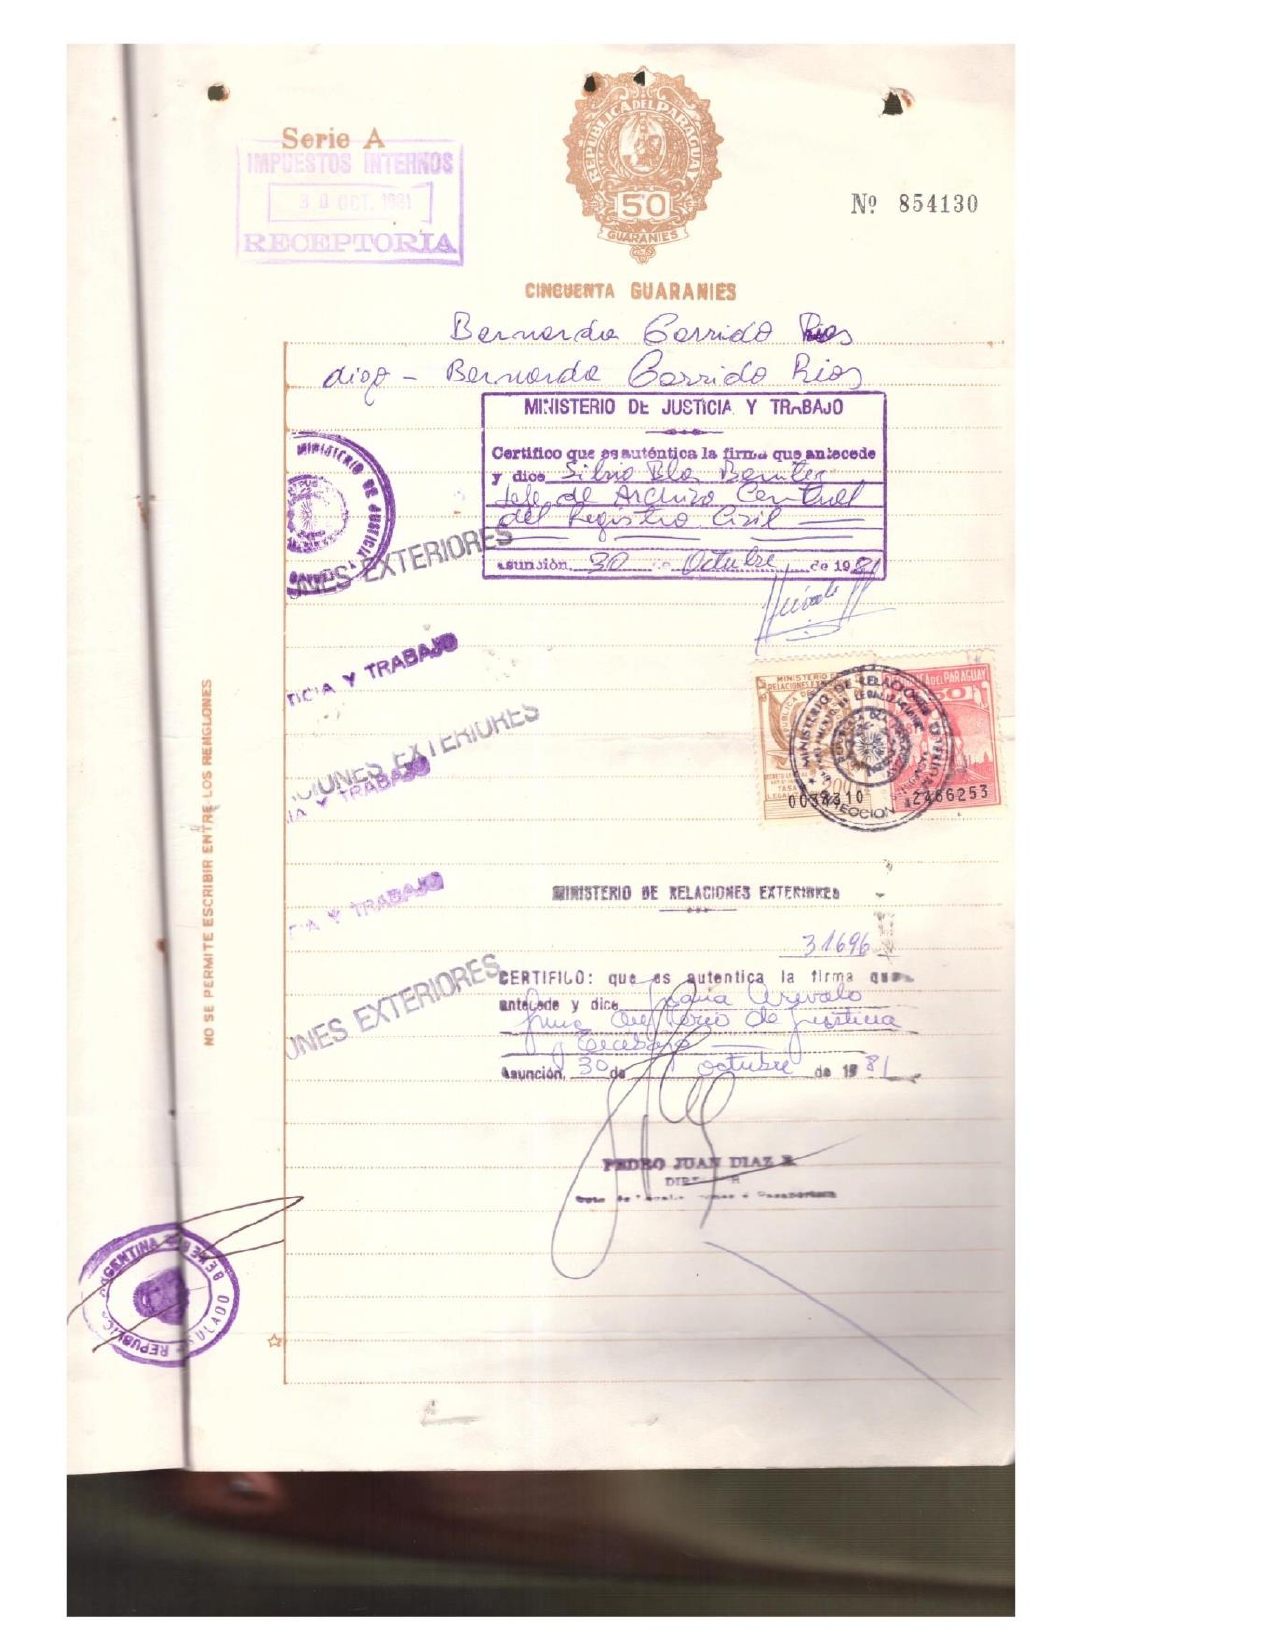 Serie A
IMPUESTOS INTERNOS
30 OCT. 1981
RECEPTORIA
REPUBLICA DEL PARAGUAY
50
GUARANIES
Nº 854130
CINCUENTA GUARANIES
Bernarda Garrido Rios
digo - Bernarda Garrido Rios
MINISTERIO DE JUSTICIA Y TRABAJO
Certifico que es auténtica la firma que antecede
y dice Silvio Blas Benitez
Jefe de Archivo Central
del Registro Civil
Asunción, 30 de Octubre de 1981
MINISTERIO DE JUSTICIA
IONES EXTERIORES
TICIA Y TRABAJO
CIONES EXTERIORES
IA Y TRABAJO
CIA Y TRABAJO
IONES EXTERIORES
NO SE PERMITE ESCRIBIR ENTRE LOS RENGLONES
MINISTERIO DE RELACIONES EXTERIORES
DIRECCION DE LEGALIZACIONES
DEL PARAGUAY
50
2466253
MINISTERIO DE RELACIONES EXTERIORES
31696
CERTIFICO: que es autentica la firma que
antecede y dice Maria Arevalo
Ministerio de Justicia
y Trabajo
Asunción, 30 de octubre de 1981
PEDRO JUAN DIAZ
DIRECTOR
REPUBLICA ARGENTINA